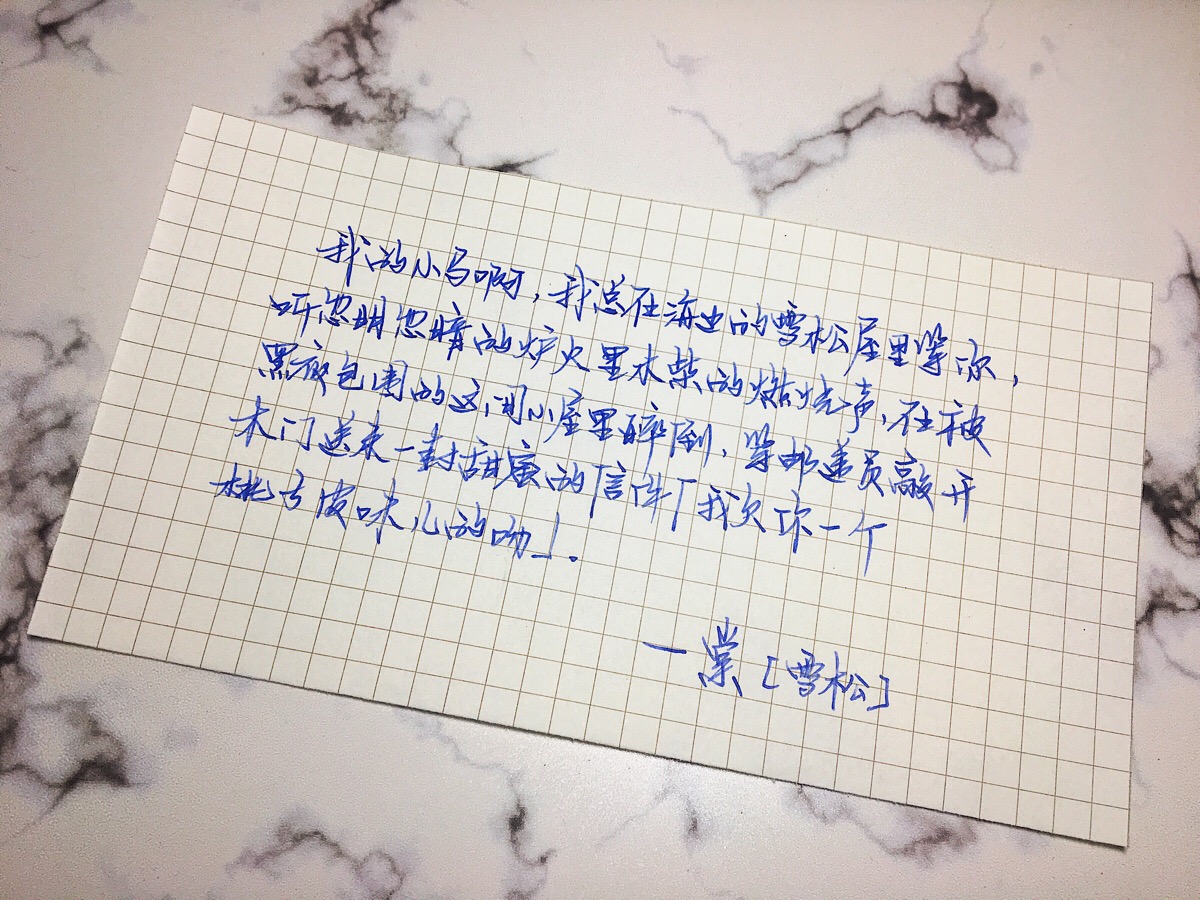 我的小马啊,我总在海边的雪松屋里等你,
听忽明忽暗的炉火里木柴的燃烧声,在被
黑夜包围的这间小屋里醉倒,等邮递员敲开
木门送来一封甜蜜的信件「我欠你一个
桃子皮味儿的吻」。
一棠[雪松]